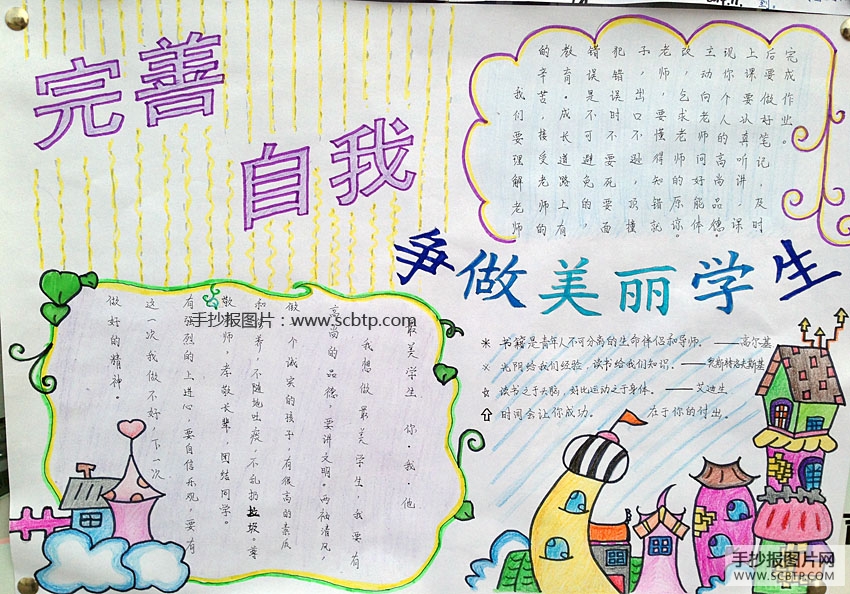 完善
自我
我们要理解老师
的辛苦,接受老师的
教育。成长道路上有,
错误是不可避免的,
犯错误时不要死要面
子,出口不逊,顶撞
老师,要懂得知错就
改,乞求老师的原谅。
立动向老师问好能体
现你个人的高尚品德
上课要认真听讲,课
后要做好笔记,及时
完成作业。
争做美丽学生
最美学生 你·我·他
我想做最美学生,我要有
高尚的品德,要讲文明。两袖清风,
做一个诚实的孩子,有很高的素质
和修养,不随地吐痰,不乱扔垃圾。尊
敬老师,孝敬长辈,团结同学。
有强烈的上进心,要自信乐观,要有
这一次我做不好,下一次
做好的精神。
手抄报图片:www.scbtp.com
书籍是青年人不可分离的生命伴侣和导师。——高尔基
光阴给我们经验,读书给我们知识。——奥斯特洛夫斯基
读书之于头脑,好比运动之于身体。——艾迪生
时间会让你成功。 在于你的付出。
手抄报图片网
WWW.SCBTP.COM